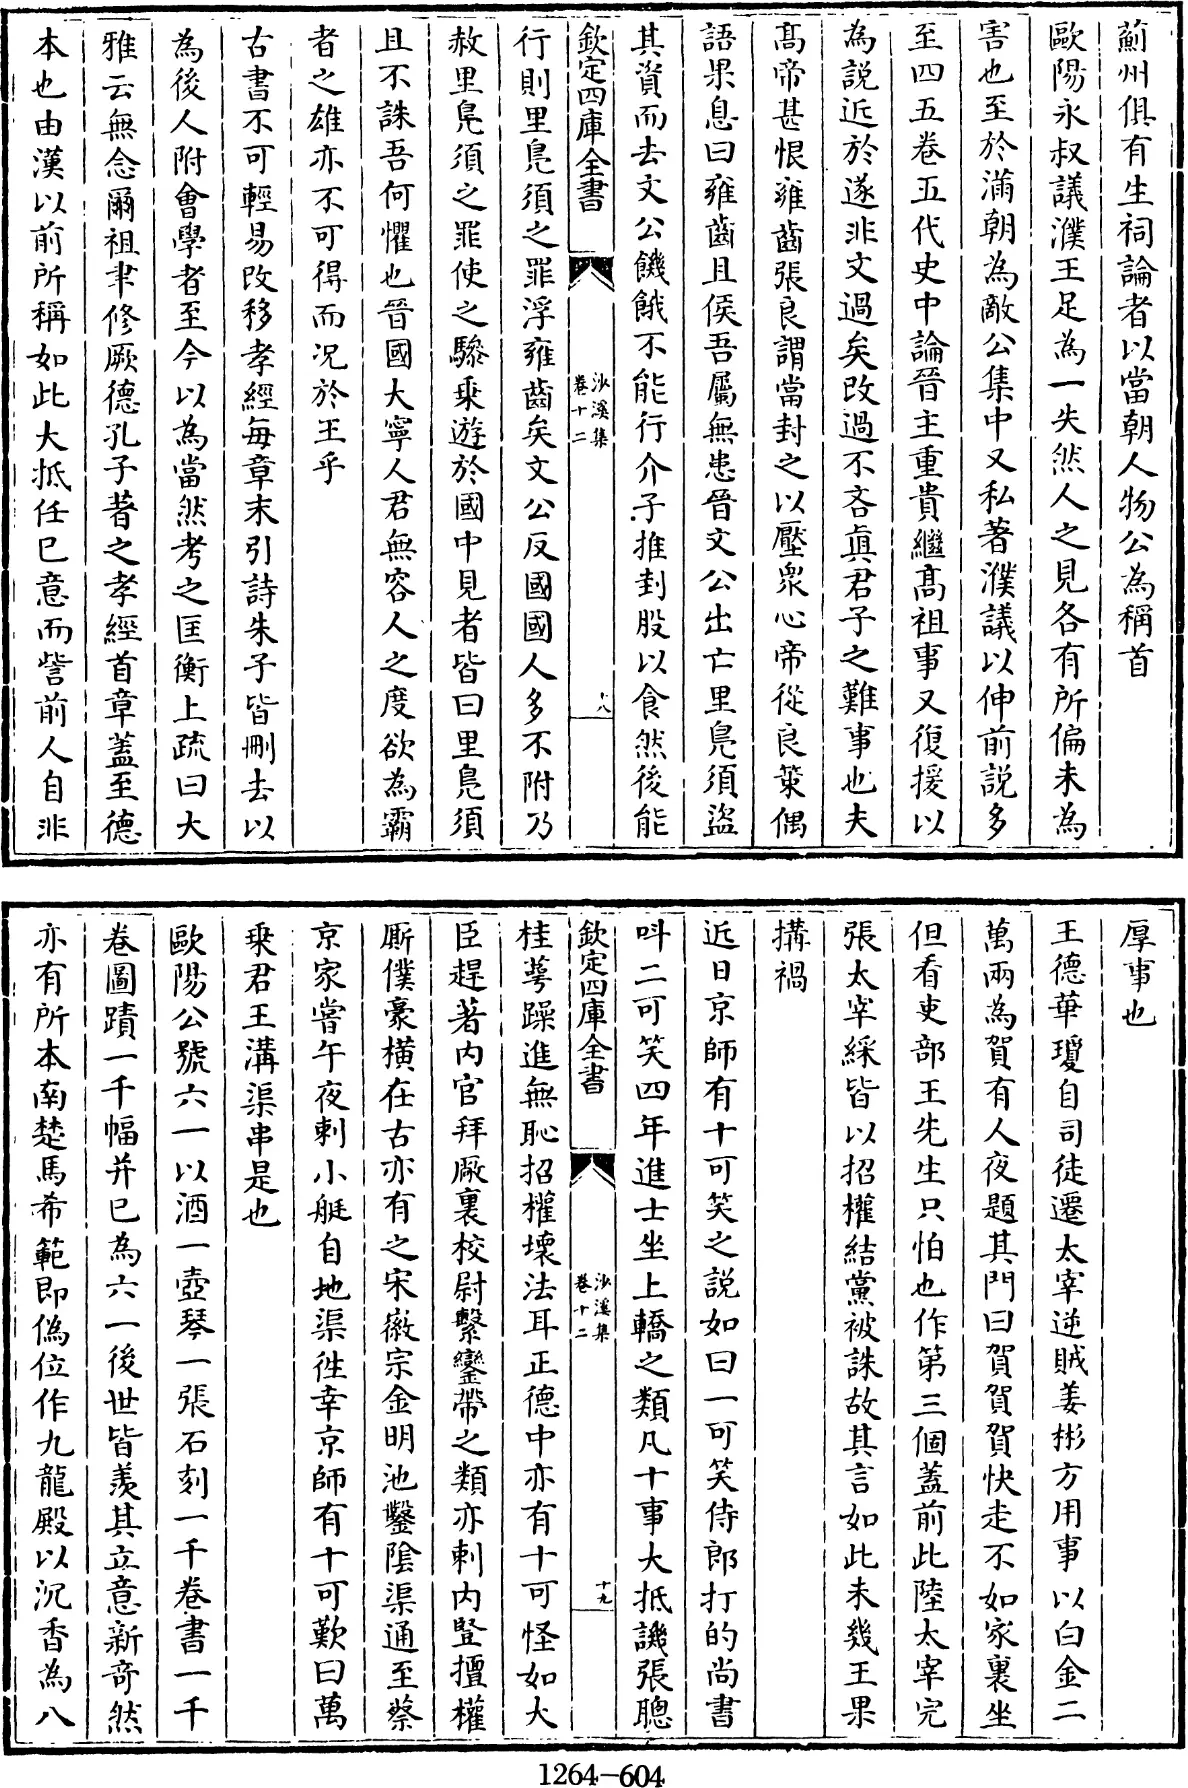 薊州俱有生祠論者以當朝人物公為稱首
歐陽永叔議濮王足為一失然人之見各有所偏未為
害也至於滿朝為敵公集中又私著濮議以伸前説多
至四五卷五代史中論晉主重貴繼髙祖事又復援以
為説近於遂非文過矣改過不吝真君子之難事也夫
髙帝甚恨雍齒張良謂當封之以壓衆心帝從良策偶
語果息曰雍齒且侯吾屬無患晉文公出亡里鳬須盜
其資而去文公饑餓不能行介子推刲股以食然後能
欽定四庫全書
沙溪集
卷十二
十八
行則里鳬須之罪浮雍齒矣文公反國國人多不附乃
赦里鳬須之罪使之驂乗遊於國中見者皆曰里鳬須
且不誅吾何懼也晉國大寧人君無容人之度欲為霸
者之雄亦不可得而况於王乎
古書不可輕易改移孝經每章末引詩朱子皆刪去以
為後人附會學者至今以為當然考之匡衡上疏曰大
雅云無念爾祖聿修厥德孔子著之孝經首章蓋至德
本也由漢以前所稱如此大抵任已意而訾前人自非
厚事也
王德華瓊自司徒遷太宰逆賊姜彬方用事以白金二
萬兩為賀有人夜題其門曰賀賀賀快走不如家裏坐
但看吏部王先生只怕也作第三個蓋前此陸太宰完
張太宰綵皆以招權結黨被誅故其言如此未幾王果
搆禍
近日京師有十可笑之説如曰一可笑侍郎打的尚書
呌二可笑四年進士坐上轎之類凡十事大抵譏張聰
欽定四庫全書
沙溪集
卷十二
十九
桂萼躁進無恥招權壞法耳正德中亦有十可怪如大
臣趕著内官拜厰裏校尉繫鑾帶之類亦刺内豎擅權
厮僕豪橫在古亦有之宋徽宗金明池鑿陰渠通至蔡
京家嘗午夜刺小艇自地渠徃幸京師有十可歎曰萬
乗君王溝渠串是也
歐陽公號六一以酒一壺琴一張石刻一千卷書一千
卷圖蹟一千幅并已為六一後世皆羨其立意新奇然
亦有所本南楚馬希範即僞位作九龍殿以沉香為八
1264-604